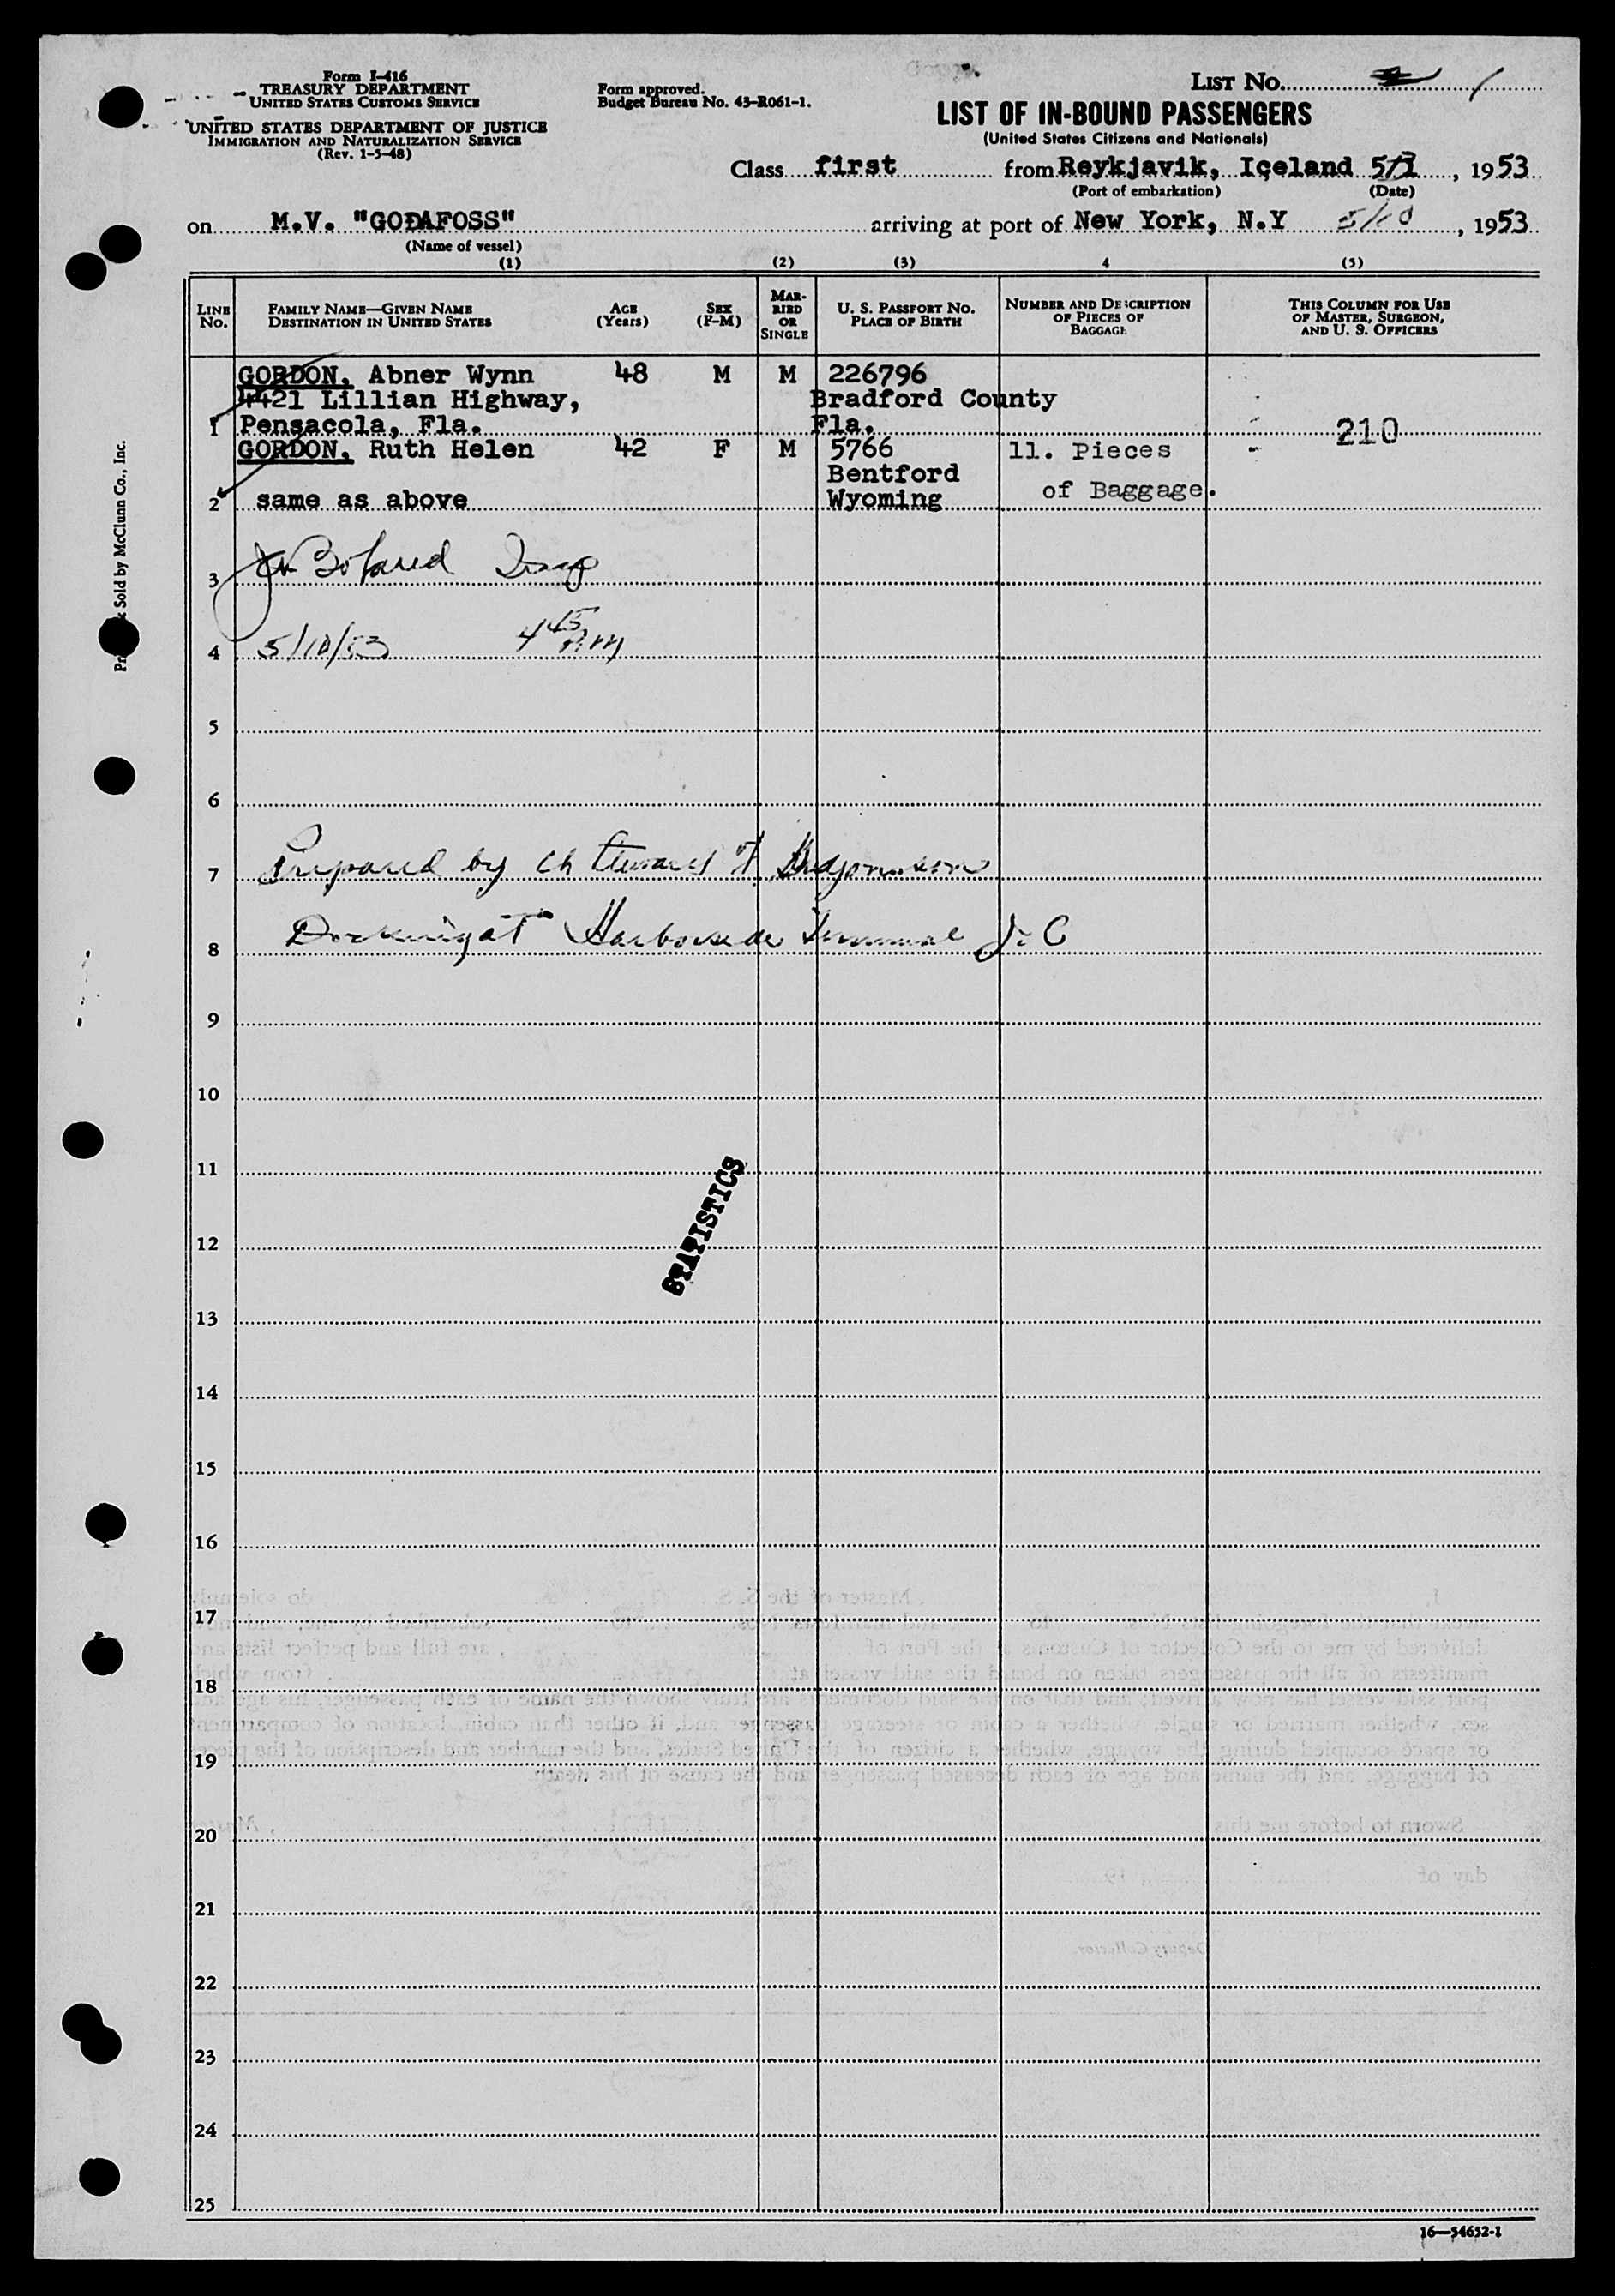 Form I-416
TREASURY DEPARTMENT
UNITED STATES CUSTOMS SERVICE
UNITED STATES DEPARTMENT OF JUSTICE
IMMIGRATION AND NATURALIZATION SERVICE
(Rev. 1-5-48)
Form approved.
Budget Bureau No. 43-R061-1.
LIST No. 1
LIST OF IN-BOUND PASSENGERS
(United States Citizens and Nationals)
Class first from Reykjavik, Iceland 5/1, 1953
(Port of embarkation) (Date)
on M.V. "GODAFOSS" arriving at port of New York, N.Y 5/10, 1953
(Name of vessel)
(1) (2) (3) 4 (5)
LINE No. FAMILY NAME—GIVEN NAME DESTINATION IN UNITED STATES AGE (Years) SEX (F-M) MARRIED OR SINGLE U. S. PASSPORT No. PLACE OF BIRTH NUMBER AND DESCRIPTION OF PIECES OF BAGGAGE THIS COLUMN FOR USE OF MASTER, SURGEON, AND U. S. OFFICERS
GORDON, Abner Wynn 48 M M 226796
4421 Lillian Highway, Bradford County
1 Pensacola, Fla. Fla. 210
GORDON, Ruth Helen 42 F M 5766 11. Pieces
Bentford
of Baggage.
2 same as above Wyoming
3
4 5/10/53 4 45 PM
5
6
7 Prepared by Ch Steward
8 Docking at Harborside Terminal J. C
9
10
11
12
STATISTICS
13
14
15
16
17
18
19
20
21
22
23
24
25
Sold by McClunn Co., Inc.
16—54652-1